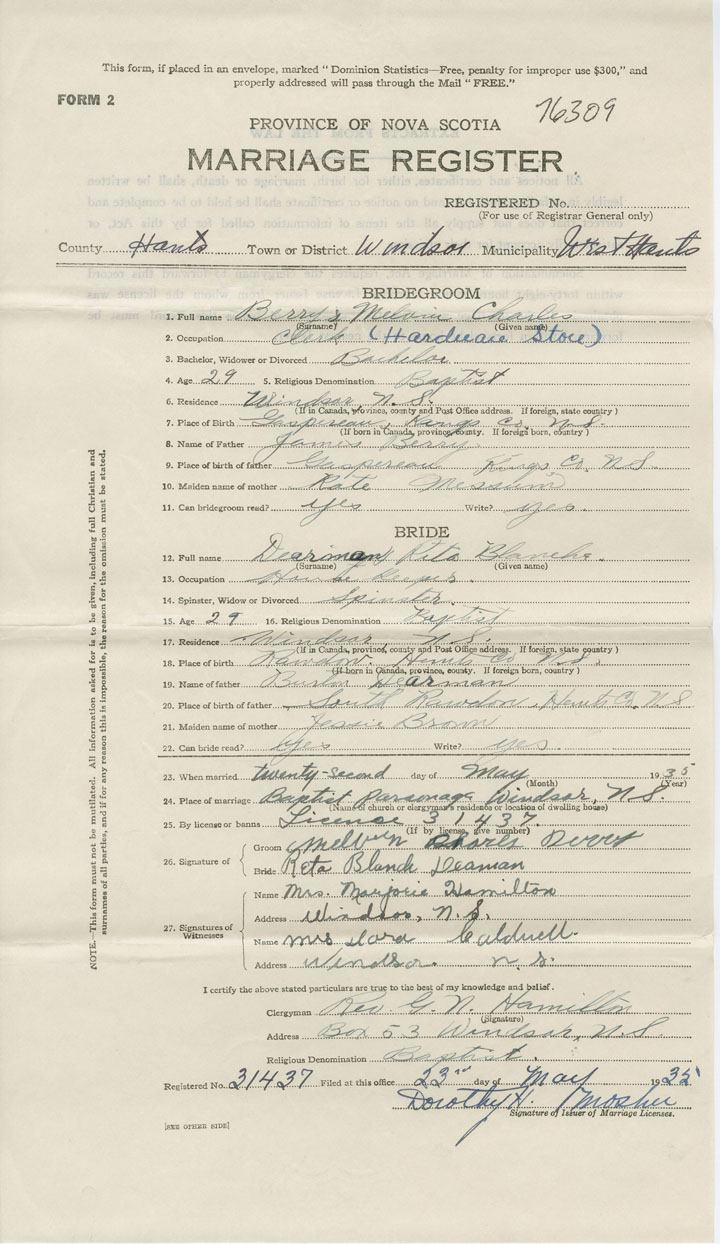 This form, if placed in an envelope, marked "Dominion Statistics—Free, penalty for improper use $300," and
properly addressed will pass through the Mail "FREE."
FORM 2
76309
PROVINCE OF NOVA SCOTIA
MARRIAGE REGISTER
REGISTERED No.
(For use of Registrar General only)
County Hants Town or District Windsor Municipality West Hants
BRIDEGROOM
1. Full name Berry, Melvin Charles
(Surname) (Given name)
2. Occupation Clerk (Hardware Store)
3. Bachelor, Widower or Divorced Bachelor
4. Age 29 5. Religious Denomination Baptist
6. Residence Windsor, N.S.
(If in Canada, province, county and Post Office address. If foreign, state country)
7. Place of Birth Gaspereau, Kings Co. N.S.
(If born in Canada, province, county. If foreign born, country)
8. Name of Father James Berry
9. Place of birth of father Gaspereau Kings Co. N.S.
10. Maiden name of mother Kate
11. Can bridegroom read? yes Write? yes.
BRIDE
12. Full name Dearman, Rita Blanche.
(Surname) (Given name)
13. Occupation House Keeper.
14. Spinster, Widow or Divorced Spinster.
15. Age 29 16. Religious Denomination Baptist
17. Residence Windsor, N.S.
(If in Canada, province, county and Post Office address. If foreign, state country)
18. Place of birth Rawdon Hants Co N.S.
(If born in Canada, province, county. If foreign born, country)
19. Name of father Dearman
20. Place of birth of father South Rawdon, Hants Co, N.S
21. Maiden name of mother Jessie Brown
22. Can bride read? yes Write? yes.
23. When married twenty-second day of May 1935
(Month) (Year)
24. Place of marriage Baptist Parsonage Windsor, N.S.
(Name of church or clergyman's residence or location of dwelling house)
25. By license or banns License 31437.
(If by license, give number)
26. Signature of
Groom Melvin Charls Berry
Bride Reta Blanch Deaman
27. Signatures of Witnesses
Name Mrs. Marjorie Hamilton
Address Windsor, N.S.
Name Mrs Caldwell.
Address Windsor N.S.
I certify the above stated particulars are true to the best of my knowledge and belief.
Clergyman Rev. G. N. Hamilton
(Signature)
Address Box 53 Windsor, N.S
Religious Denomination Baptist.
Registered No. 31437 Filed at this office 23rd day of May 1935
Dorothy H. Mosher
Signature of Issuer of Marriage Licenses.
[SEE OTHER SIDE]
NOTE.—This form must not be mutilated. All information asked for is to be given, including full Christian and
surnames of all parties, and if for any reason this is impossible, the reason for the omission must be stated.